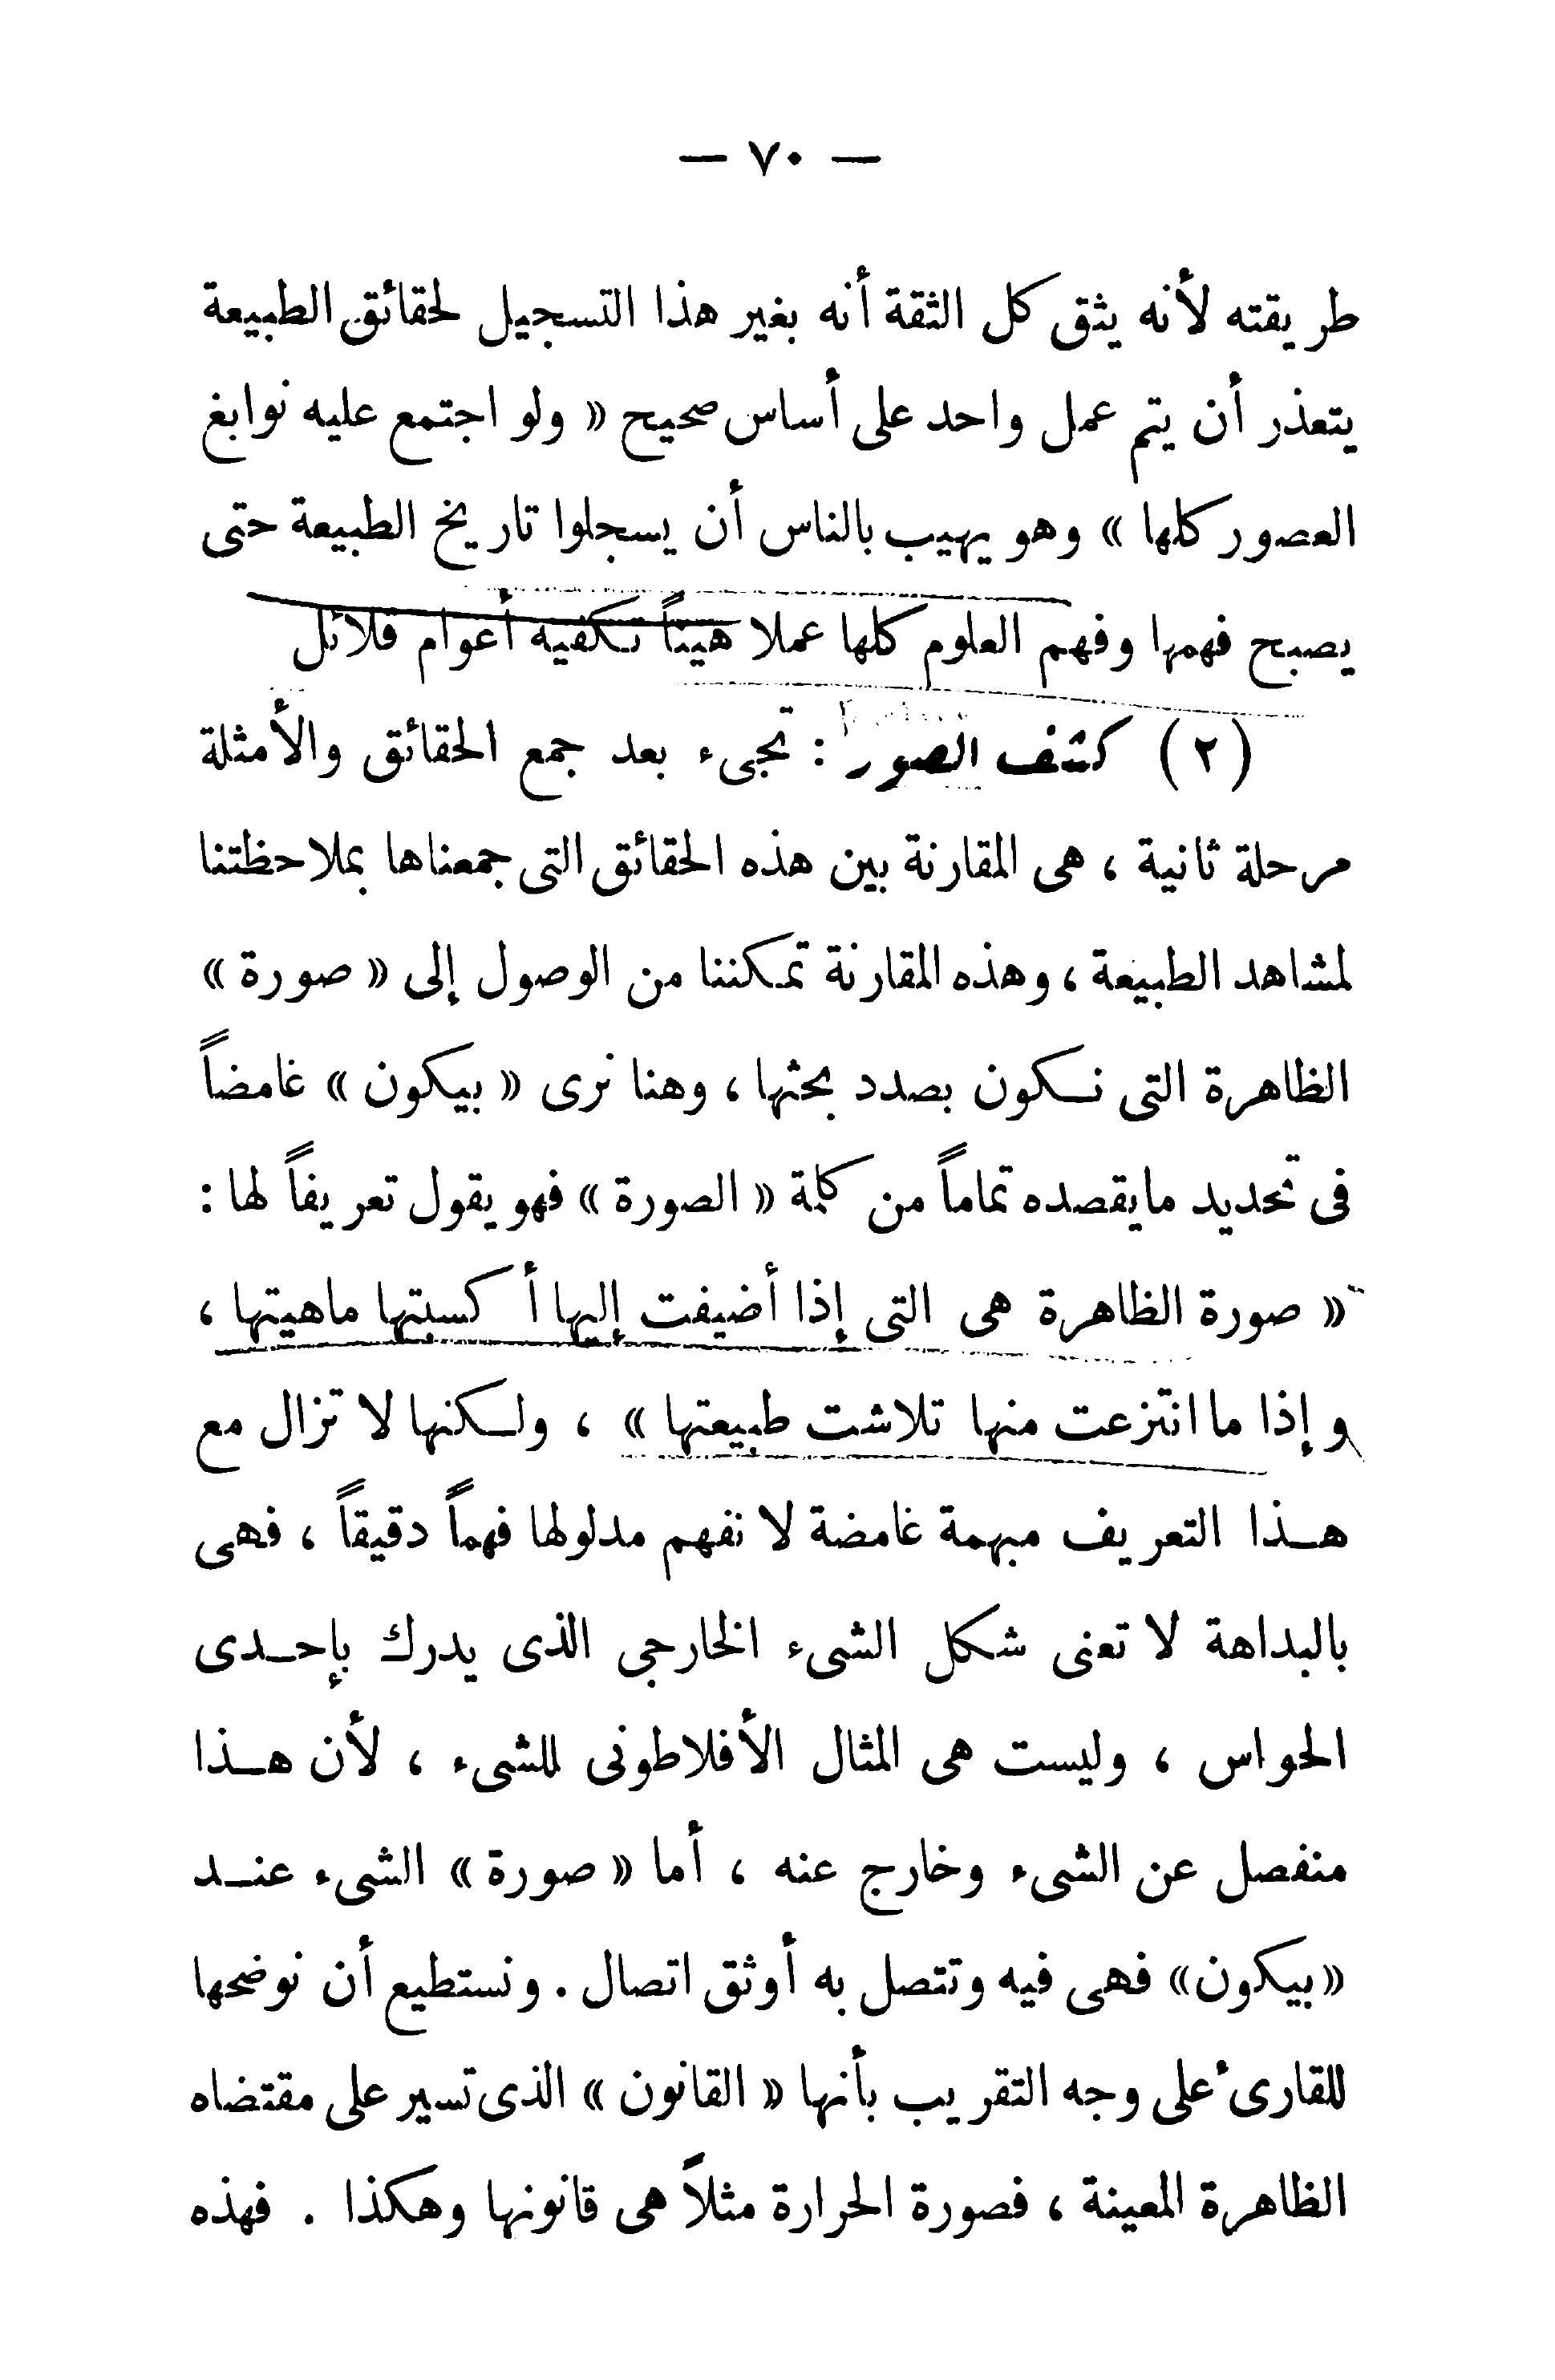 — ٧٠ —
طريقته لأنه يثق كل الثقة أنه بغير هذا التسجيل لحقائق الطبيعة
يتعذر أن يتم عمل واحد على أساس صحيح « ولو اجتمع عليه نوابغ
العصور كلها » وهو يهيب بالناس أن يسجلوا تاريخ الطبيعة حتى
يصبح فهمها وفهم العلوم كلها عملا هيناً تكفيه أعوام قلائل
(٢) كشف الصور : تجىء بعد جمع الحقائق والأمثلة
مرحلة ثانية ، هى المقارنة بين هذه الحقائق التى جمعناها بملاحظتنا
لمشاهد الطبيعة ، وهذه المقارنة تمكننا من الوصول إلى « صورة »
الظاهرة التى نكون بصدد بحثها ، وهنا نرى « بيكون » غامضاً
فى تحديد مايقصده تماماً من كلمة « الصورة » فهو يقول تعريفاً لها :
« صورة الظاهرة هى التى إذا أضيفت إليها أكسبتها ماهيتها ،
وإذا ما انتزعت منها تلاشت طبيعتها » ، ولكنها لا تزال مع
هذا التعريف مبهمة غامضة لا نفهم مدلولها فهماً دقيقاً ، فهى
بالبداهة لا تعنى شكل الشىء الخارجى الذى يدرك بإحدى
الحواس ، وليست هى المثال الأفلاطونى للشىء ، لأن هذا
منفصل عن الشىء وخارج عنه ، أما « صورة » الشىء عند
«بيكون» فهى فيه وتتصل به أوثق اتصال . ونستطيع أن نوضحها
للقارىء على وجه التقريب بأنها « القانون » الذى تسير على مقتضاه
الظاهرة المعينة ، فصورة الحرارة مثلاً هى قانونها وهكذا . فهذه